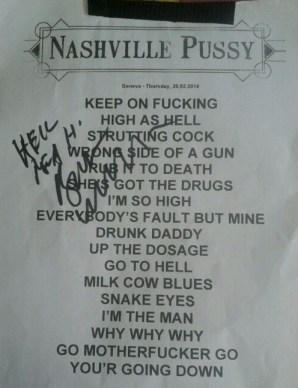 NASHVILLE PUSSY
Geneva - Thursday, 20.02.2014
KEEP ON FUCKING
HIGH AS HELL
STRUTTING COCK
WRONG SIDE OF A GUN
RUB IT TO DEATH
SHE'S GOT THE DRUGS
I'M SO HIGH
EVERYBODY'S FAULT BUT MINE
DRUNK DADDY
UP THE DOSAGE
GO TO HELL
MILK COW BLUES
SNAKE EYES
I'M THE MAN
WHY WHY WHY
GO MOTHERFUCKER GO
YOU'R GOING DOWN
HELL